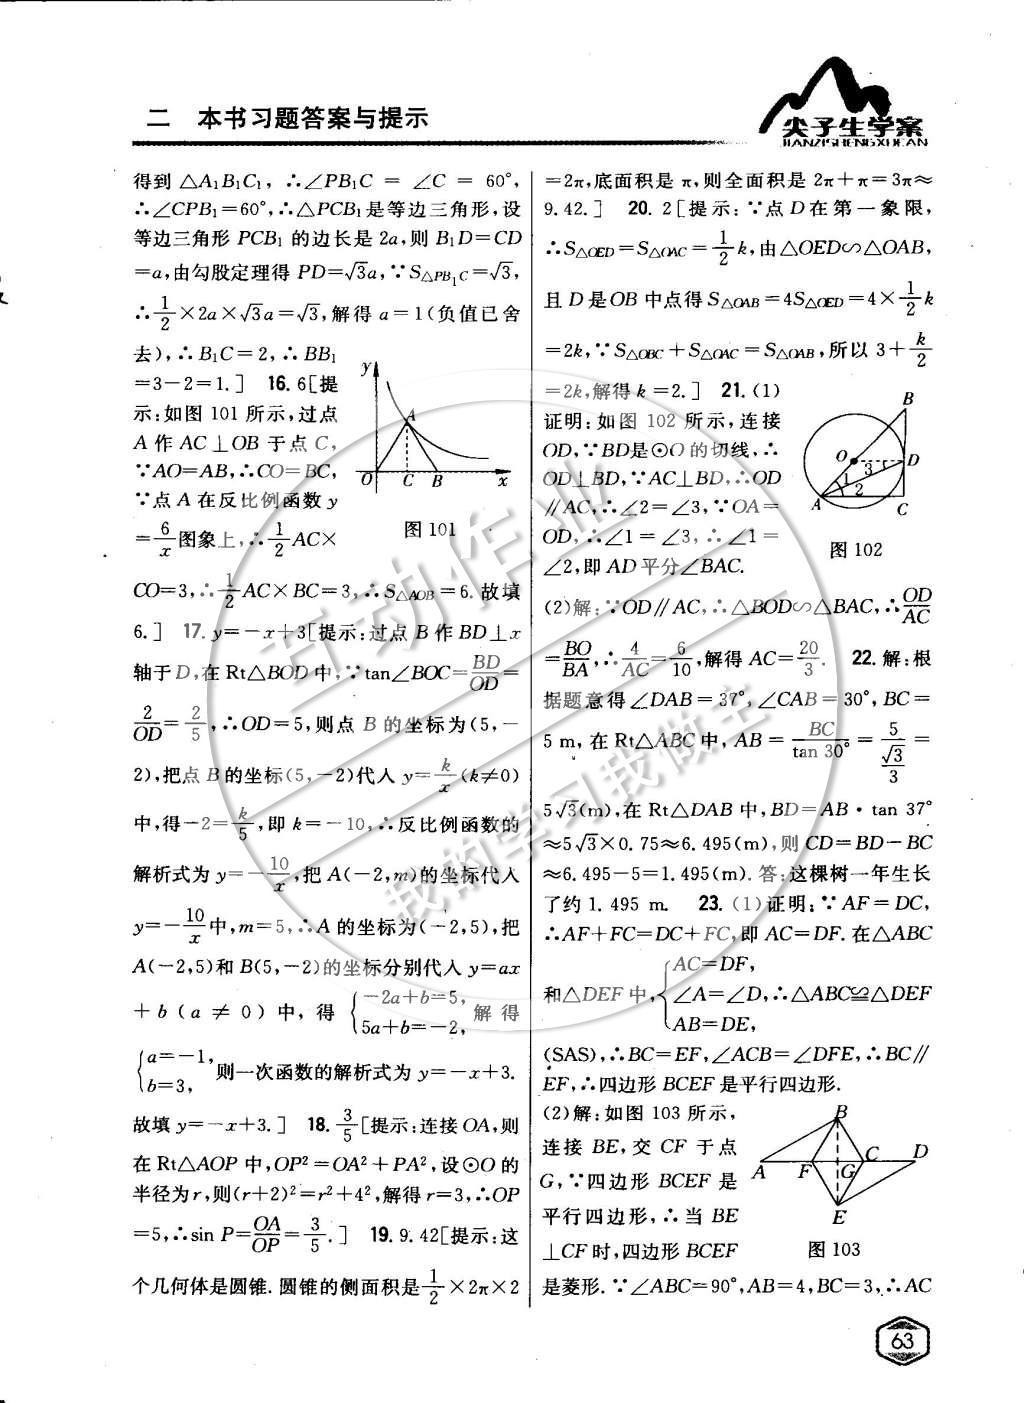 二 本书习题答案与提示
尖子生学案
JIANZISHENGXUEAN
得到 △A₁B₁C₁, ∴∠PB₁C = ∠C = 60°,
∴∠CPB₁=60°,∴△PCB₁是等边三角形,设
等边三角形 PCB₁ 的边长是 2a,则 B₁D=CD
=a,由勾股定理得 PD=√3a,∵S△PB₁C=√3,
∴1/2×2a×√3a=√3,解得 a=1(负值已舍
去),∴B₁C=2,∴BB₁
=3-2=1.] 16. 6[提
示:如图 101 所示,过点
A 作 AC⊥OB 于点 C,
∵AO=AB,∴CO=BC,
∵点 A 在反比例函数 y
=6/x图象上,∴1/2AC×
y A O C B x
图 101
CO=3,∴1/2AC×BC=3,∴S△AOB=6. 故填
6.] 17. y=-x+3[提示:过点 B 作 BD⊥x
轴于 D,在 Rt△BOD 中,∵tan∠BOC=BD/OD=
2/OD=2/5,∴OD=5,则点 B 的坐标为(5,-
2),把点 B 的坐标(5,-2)代入 y=k/x(k≠0)
中,得-2=k/5,即 k=-10,∴反比例函数的
解析式为 y=-10/x,把 A(-2,m)的坐标代入
y=-10/x中,m=5,∴A 的坐标为(-2,5),把
A(-2,5)和 B(5,-2)的坐标分别代入 y=ax
+b(a≠0)中,得 {-2a+b=5, 5a+b=-2, 解得
{a=-1, b=3, 则一次函数的解析式为 y=-x+3.
故填 y=-x+3.] 18. 3/5[提示:连接 OA,则
在 Rt△AOP 中,OP²=OA²+PA²,设⊙O 的
半径为 r,则(r+2)²=r²+4²,解得 r=3,∴OP
=5,∴sin P=OA/OP=3/5.] 19. 9. 42[提示:这
个几何体是圆锥. 圆锥的侧面积是1/2×2π×2
=2π,底面积是 π,则全面积是 2π+π=3π≈
9. 42.] 20. 2[提示:∵点 D 在第一象限,
∴S△OED=S△OAC=1/2k,由△OED∽△OAB,
且 D 是OB 中点得 S△OAB=4S△OED=4×1/2k
=2k,∵S△OBC+S△OAC=S△OAB,所以 3+k/2
=2k,解得 k=2.] 21. (1)
证明:如图 102 所示,连接
OD,∵BD是⊙O的切线,∴
OD⊥BD,∵AC⊥BD,∴OD
∥AC,∴∠2=∠3,∵OA=
OD,∴∠1=∠3,∴∠1=
∠2,即 AD 平分∠BAC.
B O D A C 1 2 3
图 102
(2)解:∵OD∥AC,∴△BOD∽△BAC,∴OD/AC
=BO/BA,∴4/AC=6/10,解得 AC=20/3. 22. 解:根
据题意得∠DAB=37°,∠CAB=30°,BC=
5 m, 在 Rt△ABC 中, AB = BC/tan 30° = 5/(√3/3) =
5√3(m),在 Rt△DAB 中,BD=AB·tan 37°
≈5√3×0. 75≈6. 495(m),则 CD=BD-BC
≈6. 495-5=1. 495(m). 答:这棵树一年生长
了约 1. 495 m. 23. (1)证明:∵AF=DC,
∴AF+FC=DC+FC,即 AC=DF. 在△ABC
和△DEF 中,{AC=DF, ∠A=∠D, AB=DE, ∴△ABC≌△DEF
(SAS),∴BC=EF,∠ACB=∠DFE,∴BC∥
EF,∴四边形 BCEF 是平行四边形.
(2)解:如图 103 所示,
连接 BE,交 CF 于点
G,∵四边形 BCEF 是
平行四边形,∴当 BE
⊥CF时,四边形 BCEF
B A F G C D E
图 103
是菱形. ∵∠ABC=90°,AB=4,BC=3,∴AC
63
互动作业
我的学习我做主